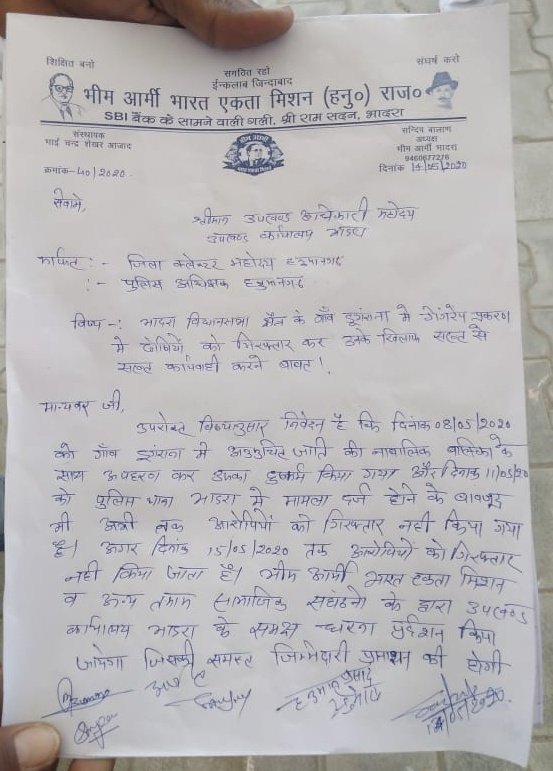 शिक्षित बनो
संगठित रहो
संघर्ष करो
ईन्कलाब जिन्दाबाद
भीम आर्मी भारत एकता मिशन (हनु०) राज०
SBI बैंक के सामने वाली गली, श्री राम सदन, भादरा
संस्थापक
भाई चन्द्र शेखर आजाद
सन्दिप बालाण
अध्यक्ष
भीम आर्मी भादरा
9460677276
क्रमांक-40/2020.
दिनांक 14/05/2020
सेवामे,
श्रीमान उपखण्ड अधिकारी महोदय
उपखण्ड कार्यालय भादरा
:- जिला कलेक्टर महोदय हनुमानगढ
:- पुलिस अधिक्षक हनुमानगढ
विषय -: भादरा विधानसभा क्षेत्र के गाँव डूंगराना मे गैंगरेप प्रकरण
मे दोषियों को गिरफ्तार कर उनके खिलाफ सख्त से
सख्त कार्यवाही करने बाबत!
मान्यवर जी,
उपरोक्त विषयानुसार निवेदन है कि दिनांक 08/05/2020
को गाँव डूंगराना मे अनुसुचित जाति की नाबालिक बालिका के
साथ अपहरण कर उसका दुष्कर्म किया गया और दिनांक 11/05/20
को पुलिस थाना भादरा मे मामला दर्ज होने के बावजूद
भी अभी तक आरोपियों को गिरफ्तार नही किया गया
है। अगर दिनांक 15/05/2020 तक आरोपियों को गिरफ्तार
नही किया जाता है। भीम आर्मी भारत एकता मिशन
व अन्य तमाम सामाजिक संघठनो के द्वारा उपखण्ड
कार्यालय भादरा के समक्ष धरना प्रर्दशन किया
जायेगा जिसकी समस्त जिम्मेदारी प्रशासन की होगी
14/05/2020.